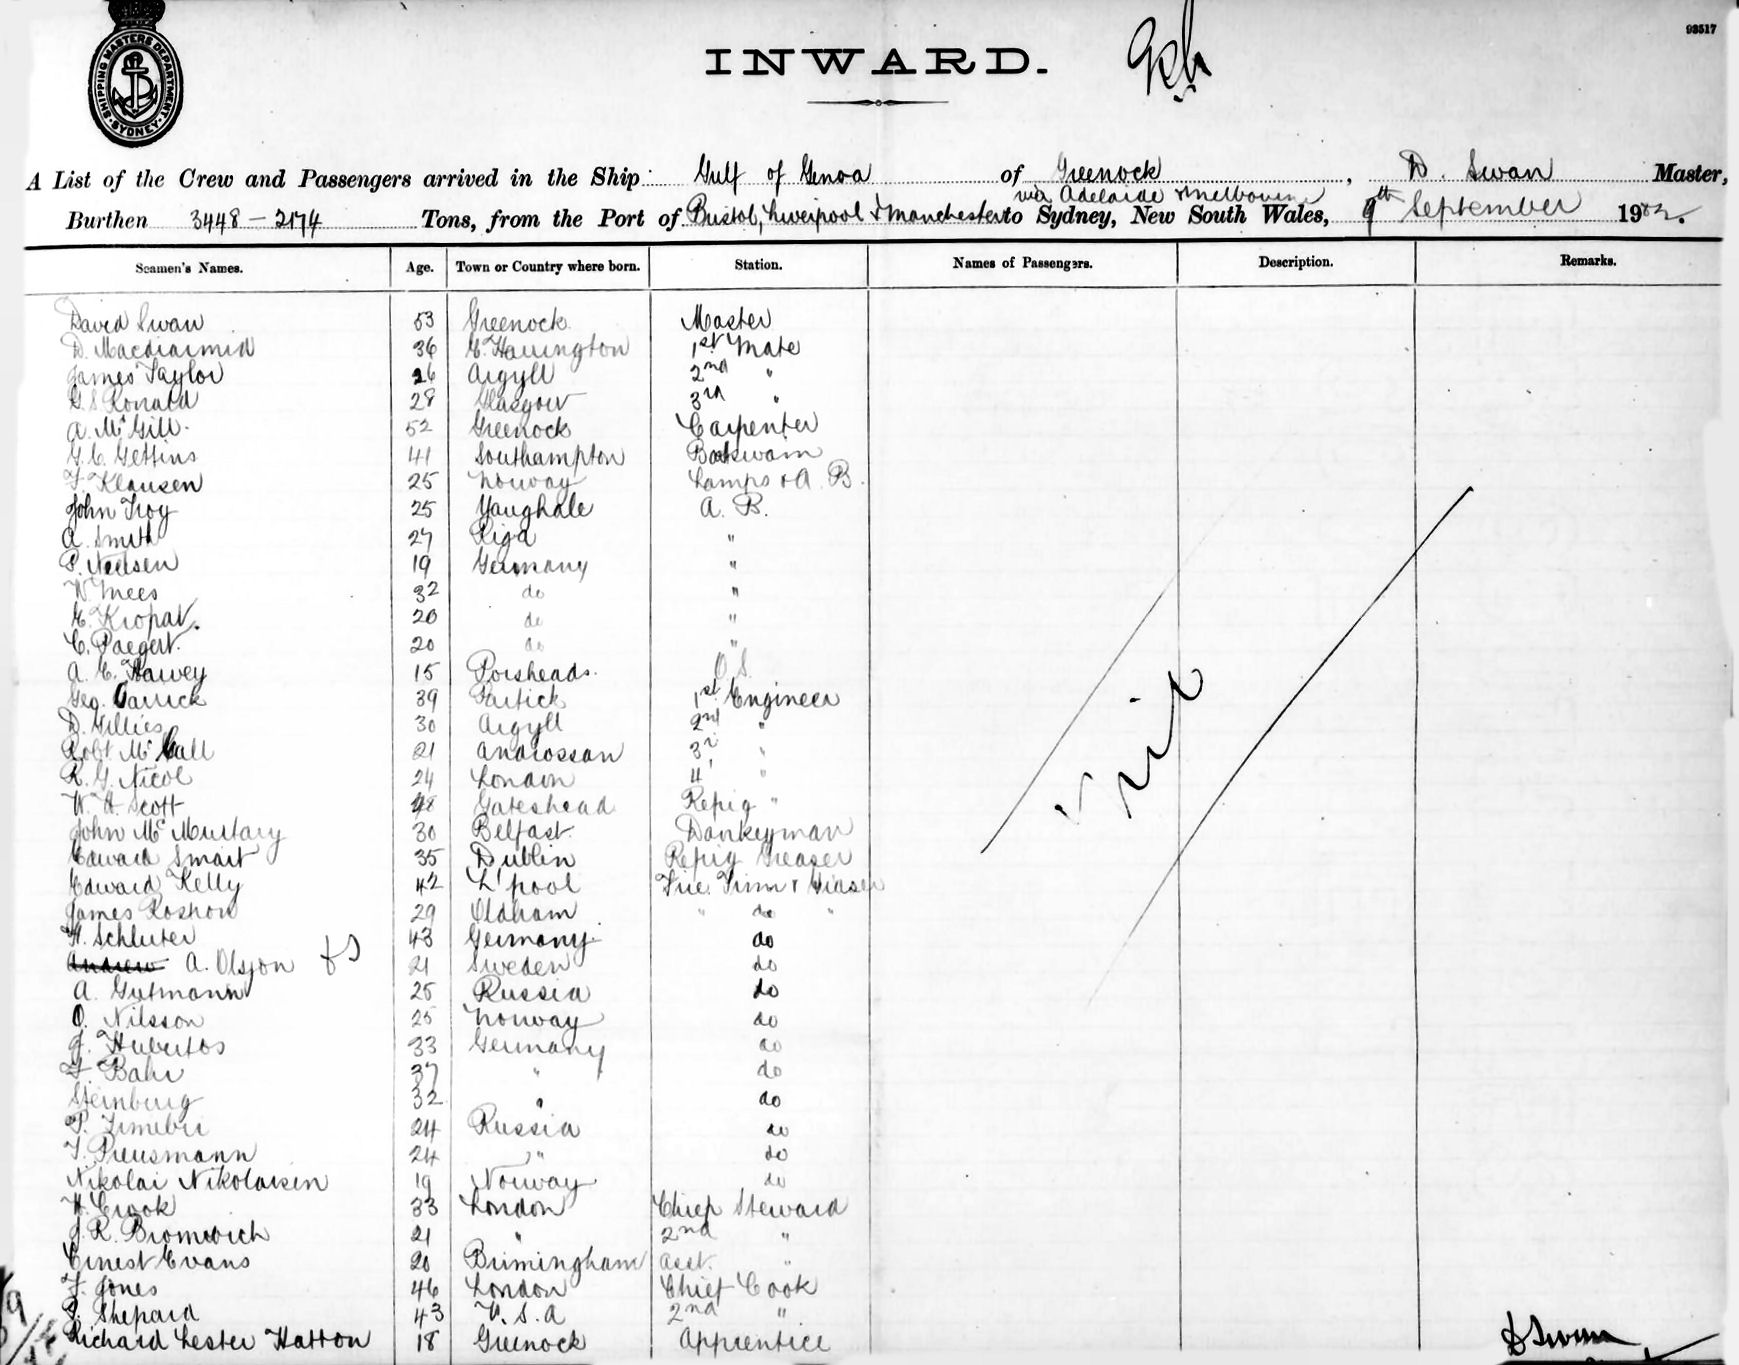 SHIPPING MASTERS DEPARTMENT SYDNEY
93517
INWARD.
A List of the Crew and Passengers arrived in the Ship Gulf of Genoa of Greenock, D. Swan Master,
via Adelaide & Melbourne
Burthen 3448 - 2174 Tons, from the Port of Bristol, Liverpool & Manchester to Sydney, New South Wales, 9th September 1902.
Seamen's Names. Age. Town or Country where born. Station. Names of Passengers. Description. Remarks.
David Swan 53 Greenock Master
D. Macdiarmid 36 Harrington 1st Mate
James Taylor 26 Argyll 2nd "
G. S. Ronald 28 Glasgow 3rd "
A. McGill. 52 Greenock Carpenter
G. C. Gettins 41 Southampton
F. Klausen 25 Norway Lamps & A. B.
John Troy 25 Youghale A. B.
A. Smith 27 Riga "
P. Neilsen 19 Germany "
W. Mees 32 do "
E. Kropat. 20 do "
C. Paegert. 20 do "
A. E. Harvey 15 O S
Geo. Garrick 39 Partick 1st Engineer
D. Gillies 30 Argyll 2nd "
Robt McCall 21 Ardrossan 3rd "
R. G. Nicol 24 London 4th "
W. H. Scott 28 Gateshead Refrig "
John McMustary 30 Belfast. Donkeyman
Edward Smart 35 Dublin Refrig Greaser
Edward Kelly 42 L'pool Fire. Trim & Greaser
James 29 Oldham " do "
H. Schluter 43 Germany do
Andrew A. Olsson 21 Sweden do
A. Gutmann 25 Russia do
O. Nilsson 25 Norway do
J. Hubertos 33 Germany do
F. Bahr 37 " do
Steinburg 32 " do
P. 24 Russia do
T. Preusmann 24 " do
Nikolai Nikolaisen 19 Norway do
H. Crook 33 London Chief Steward
J. R. Bromwich 21 " 2nd "
Ernest Evans 20 Birmingham Asst. "
F. Jones 46 London Chief Cook
P. Shepard 43 U. S. A 2nd "
Richard Lester Hatton 18 Greenock Apprentice
Nil
D Swan